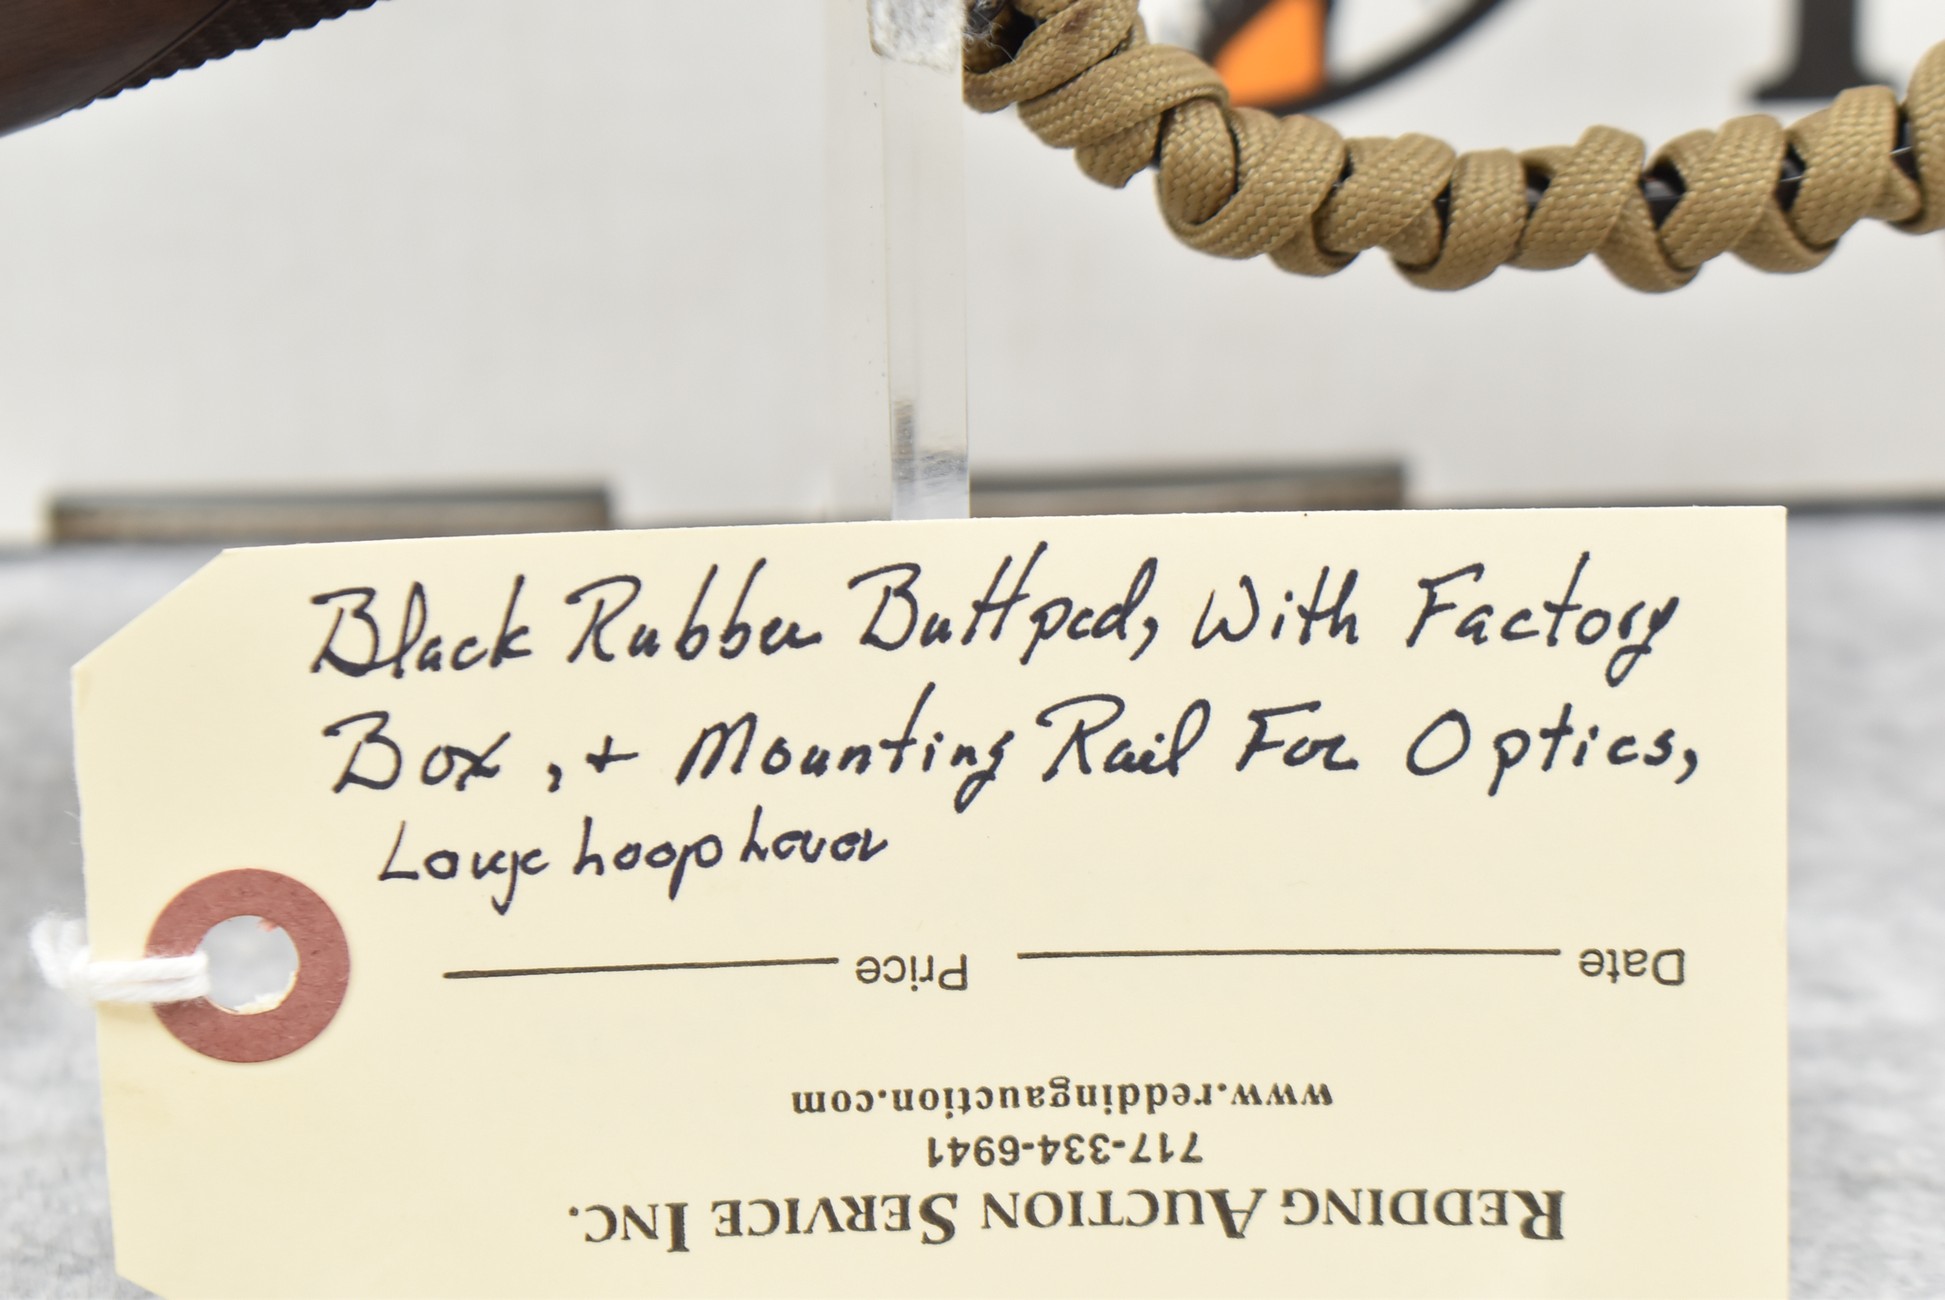 Black Rubber Buttpad, With Factory
Box, + Mounting Rail For Optics,
Large Loop Lever
Date Price
www.reddingauction.com
717-334-6941
REDDING AUCTION SERVICE INC.